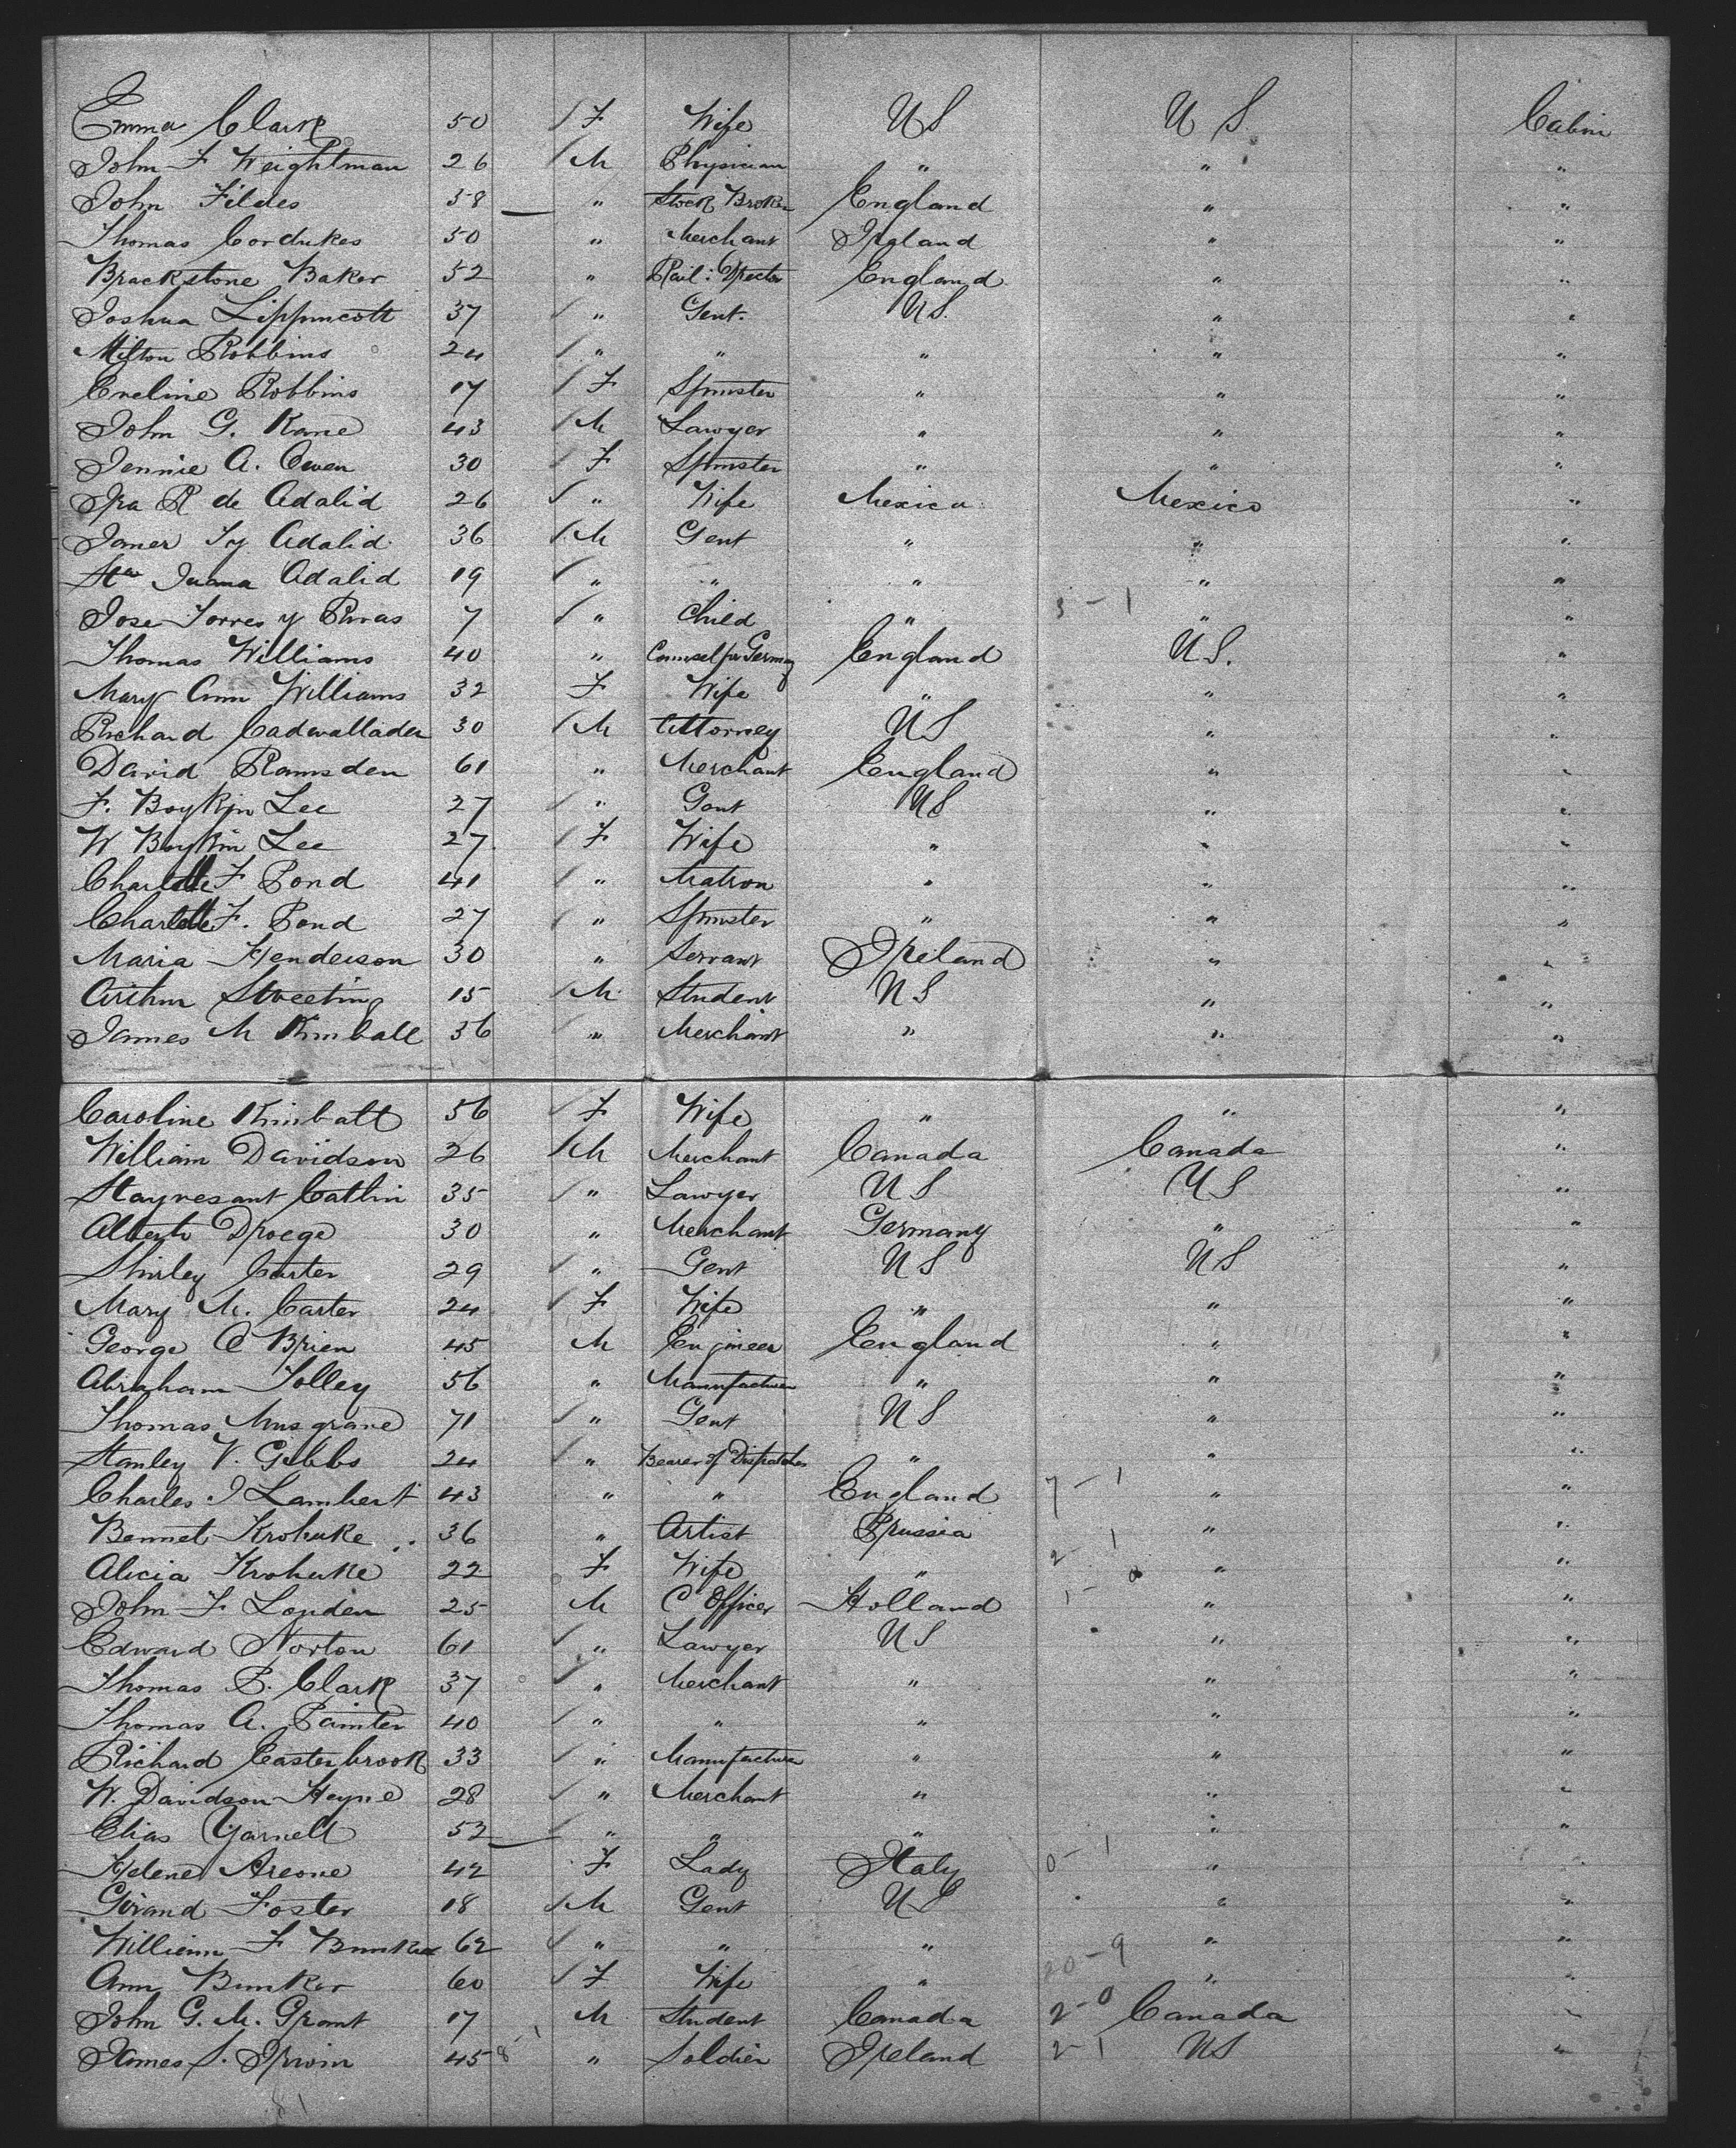 Emma Clark 50 / F Wife US US. Cabin
John F Weightman 26 / M Physician " " "
John Fildes 38 " Stock Broker England " "
Thomas Cordukes 50 " Merchant Ireland " "
Brackstone Baker 52 " Rail: Director England " "
Joshua Lippincott 37 / " Gent. US. " "
Milton Robbins 24 / " " " " "
Eveline Robbins 17 / F Spinster " " "
John G. Kane 43 / M Lawyer " " "
Jennie A. Owen 30 / F Spinster " " "
Ira R de Adalid 26 / " Wife Mexico Mexico "
Ty Adalid 36 / M Gent " " "
Juana Adalid 19 / " " " " "
Jose Torres y Rivas 7 / " Child " 3 - 1 " "
Thomas Williams 40 " Counsel for Germany England US. "
Mary Ann Williams 32 F Wife " " "
Richard Cadwallader 30 / M Attorney US " "
David Ramsden 61 " Merchant England " "
F. Boykin Lee 27 / " Gent US " "
W Boykin Lee 27 / F Wife " " "
Charlotte F Pond 41 / " Matron " " "
Charlotte F. Pond 27 / " Spinster " " "
Maria Henderson 30 " Servant Ireland " "
Arthur Sweeting 15 / M Student US " "
James M Kimball 56 " Merchant " " "
Caroline Kimball 56 / F Wife " " "
William Davidson 26 / M Merchant Canada Canada "
Stayvesant Catlin 35 / " Lawyer US US "
Alberto Droege 30 " Merchant Germany " "
Shirley Carter 29 / " Gent US US "
Mary M. Carter 24 / F Wife " " "
George O Brien 45 M Engineer England " "
Abraham Tolley 56 " Manufacturer " " "
Thomas Musgrave 71 / " Gent US " "
Stanley V. Gibbs 24 / " Bearer of Dispatches " " "
Charles J Lambert 43 " " England 7 - 1 " "
Bennet Krohuke 36 " Artist Prussia 2 - 1 " "
Alicia Krohuke 22 F Wife " " "
John F Louden 25 M C Officer Holland 1 - " "
Edward Norton 61 / " Lawyer US " "
Thomas B. Clark 37 / " Merchant " " "
Thomas A. Painter 40 / " " " " "
Richard Easterbrook 33 / " Manufacturer " " "
W. Davidson Heyne 28 / " Merchant " " "
Elias Yarnell 52 / " " " " "
Helene Areone 42 F Lady Italy 0 - 1 " "
Girand Foster 18 / M Gent US " "
William F Bunker 62 / " " " " "
Ann Bunker 60 / F Wife " 20 - 9 " "
John G. M. Grant 17 M Student Canada 2 - 0 Canada "
James S. Irwin 45 8 - 1 " Soldier Ireland 2 - 1 US "
81